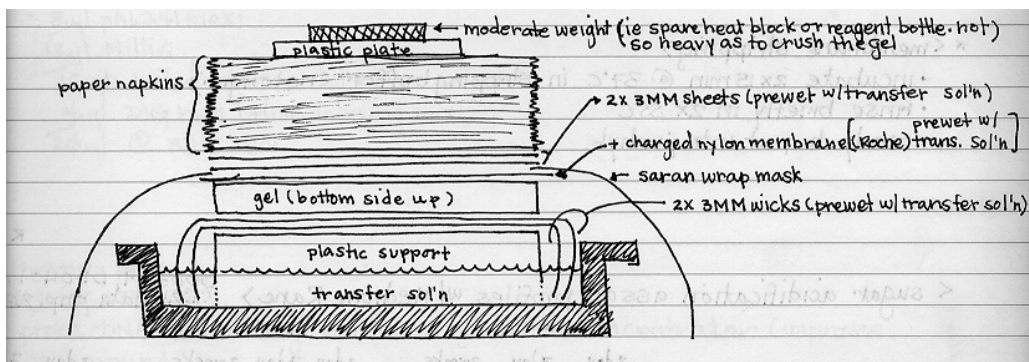 moderate weight (ie spare heat block or reagent bottle. not)
so heavy as to crush the gel
plastic plate
paper napkins
2X 3MM sheets (prewet w/transfer sol'n)
+ charged nylon membrane [(Roche) prewet w/ trans. sol'n]
saran wrap mask
gel (bottom side up)
2X 3MM wicks (prewet w/ transfer sol'n)
plastic support
transfer sol'n